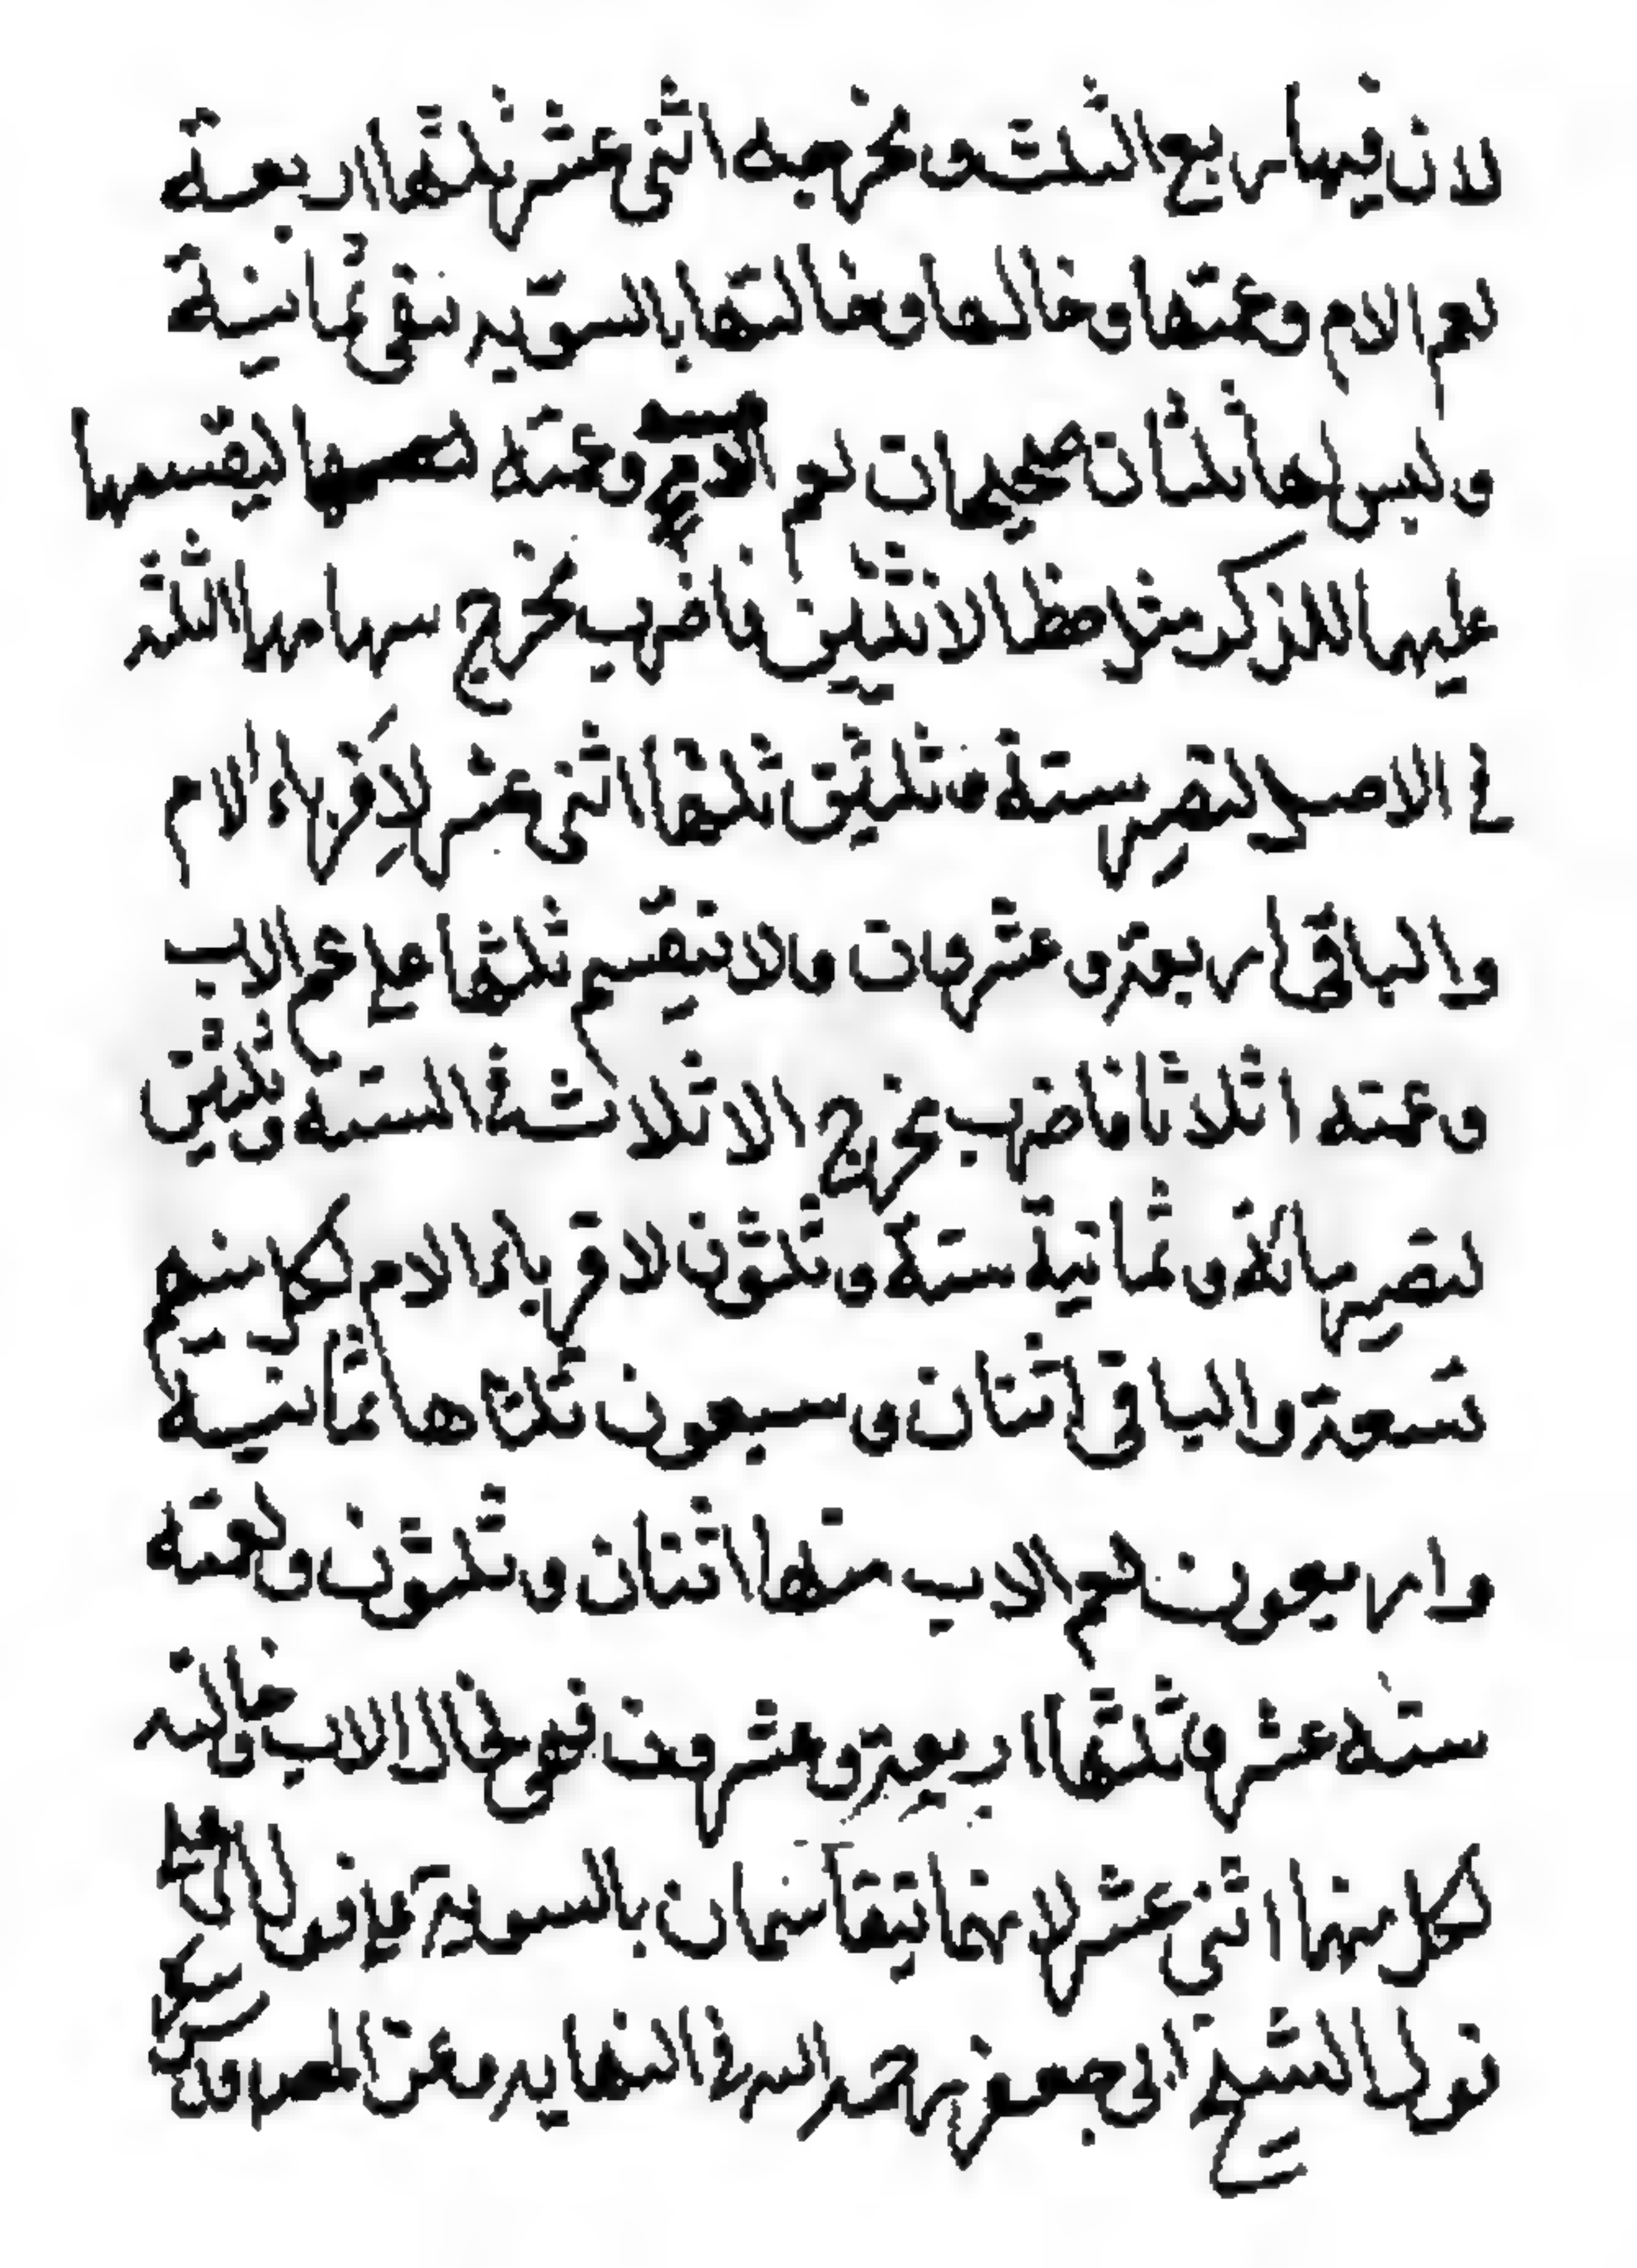 لان فيها ربع الثلث ومخرجه اثنى عشر ثلثها اربعة
لعم الام وعمتها وخالها وخالتها بالسويه تبقى ثمانية
وليس لها ثلثان صحيحان لعم وعمته ليقسمها
عليهما للذكر مثل حظ الانثيين فاضرب مخرج سهامهما الثلثه
في الاصل تصير ستة وثلثين ثلثها اثنى عشر لاقرباء الام
والباقى اربعة وعشرون ولا تنقسم ثلثها على عم الاب
وعمته اثلاثا فاضرب مخرج الاثلاث في الستة وثلثين
تصير مائة وثمانية ستة وثلثون لاقرباء الام لكل منهم
تسعة والباقى اثنان وسبعون ثلثاها ثمانية
واربعون لعم الاب منها اثنان وثلثون ولعمته
ستة عشر وثلثها اربعة وعشرون فهى لخال الاب وخالته
لكل منهما اثنى عشر لانهما يتقاسمان بالسوية على قول
قول الشيخ ابى جعفر رحمه الله في النهايه وعن المصر